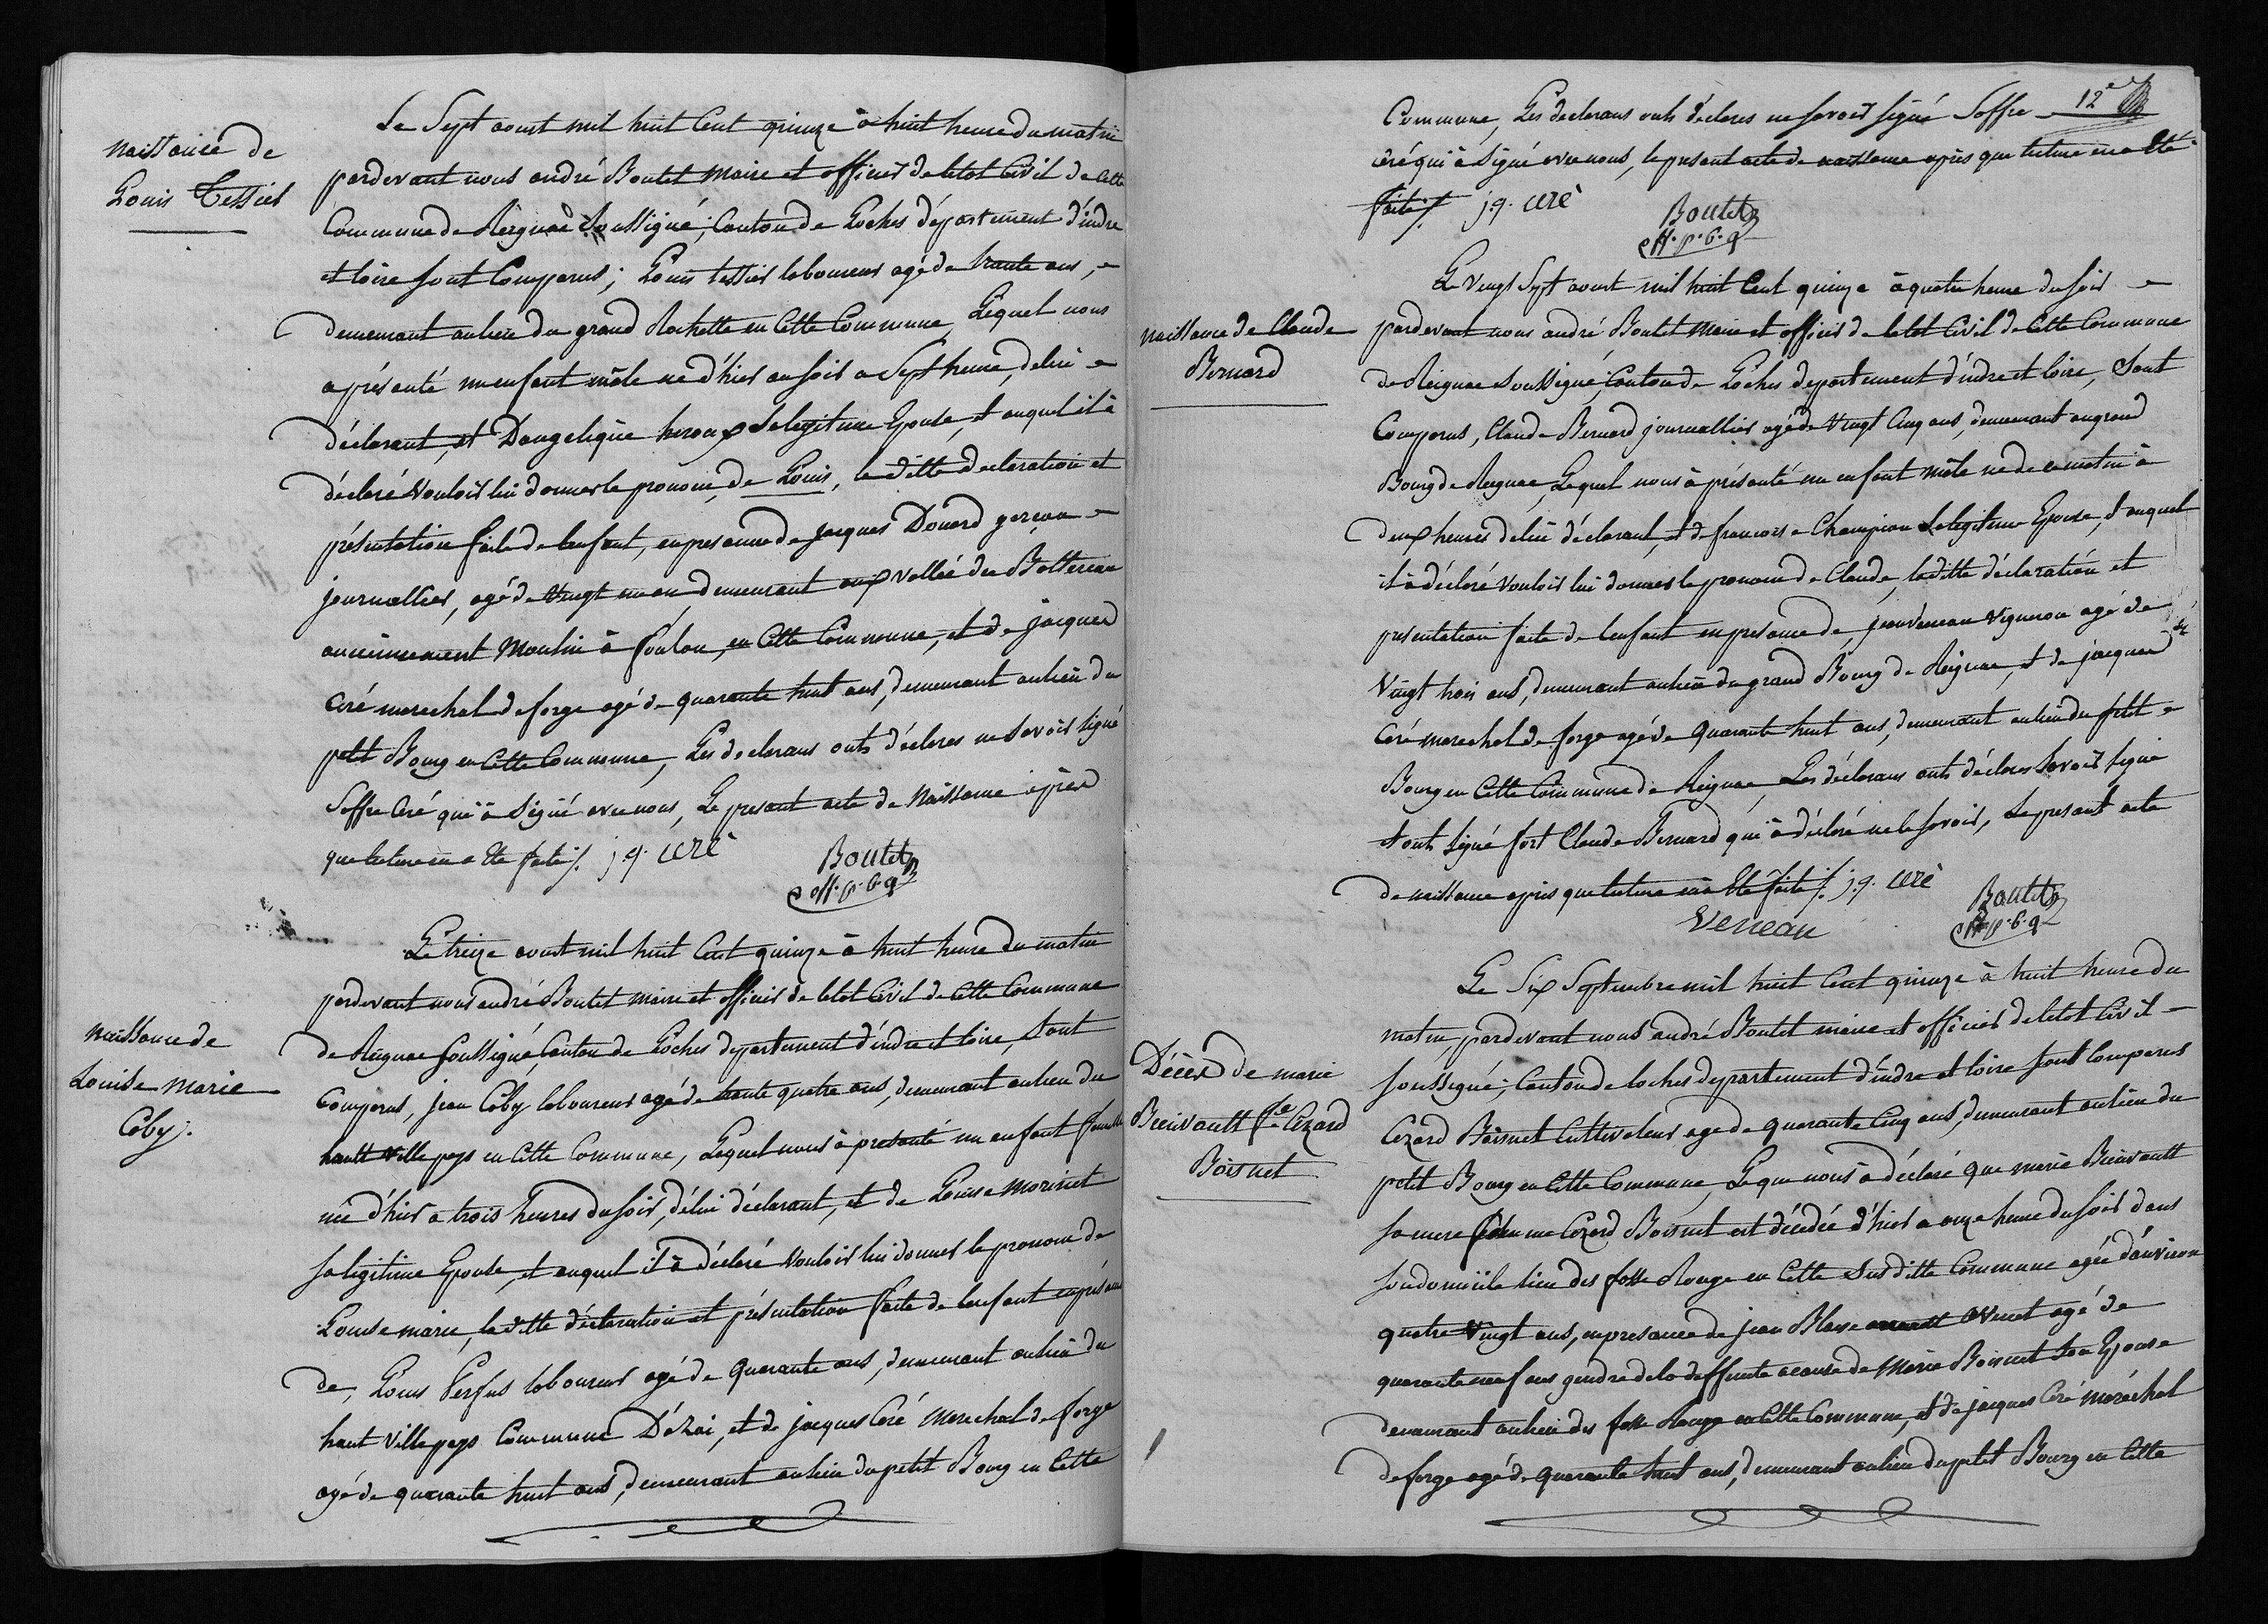 naissance de
Louis Tessier
Le Sept aoust mil huit Cent quinze à huit heure du matin
pardevant nous andré Boutet maire et officier de letat Civil de Cette
Commune de Reignac Soussigné, Canton de Loches département d'indre
et loire sont Comparus; Louis tessier laboureur agé de trante ans,
demeurant au lieu du grand Rochette en Cette Commune, Lequel nous
a présanté un enfant mâle né d'hier au soir a Sept heure, de lui
déclarant, et D'angelique heroux Sa legitime Epouse, et auquel il à
déclaré Vouloir lui donner le pronom, de Louis, la ditte declaration et
présentation faite de lenfant, en presance de jacques Douard garçon
journallier, agé de Vingt un an demeurant aux Vallée du Bottereau
anciennement Moulin à foulon, en Cette Commune, et de jacques
Ceré marechal de forge agé de quarante huit ans, demeurant au lieu du
petit Bourg en Cette Commune, Les declarans onts déclares ne Savoir signé
Soffre Ceré qui à Signé avec nous, Le presant acte de Naissance après
que lecture en a Eté faite ./. j.q. ceré Boutet
off. p. b. q
naissance de
Louise marie
Coby.
Le treize aoust mil huit Cent quinze à huit heure du matin
pardevant nous andré Boutet maire et officier de letat Civil de Cette Commune
de Reignac Soussigné, Canton de Loches département d'indre et loire, Sont
Comparus, jean Coby laboureur agé de trante quatre ans, demeurant au lieu du
hautt Ville pays en Cette Commune, Lequel nous à presanté un enfant femelle
née d'hier a trois heures du soir, de lui déclarant, et de Louise Morinet
Sa legitime Epouse, et auquel il à déclaré Vouloir lui donner le pronom de
Louise marie, la ditte déclaration et présentation faite de lenfant en présance
de, Louis Perfus laboureur agé de quarante ans, demeurant au lieu du
haut Ville pays Commune D'azai, et de jacques Ceré Marechal de forge
agé de quarante huit ans, demeurant au lieu du petit Bourg en Cette
12e
Commune, Les declarans onts déclares ne savoir signé Soffre
Ceré qui à Signé avec nous, le presant acte de naissance après que lecture en a Eté
faite ./. j.q. ceré Boutet
off. p. b. q
naissance de Claude
Bernard
Le Vingt Sept aoust mil huit Cent quinze à quatre heure du soir
pardevant nous andré Boutet Maire et officier de letat Civil de Cette Commune
de Reignac Soussigné, Canton de Loches departement d'indre et loire, Sont
Comparus, Claude Bernard journallier agé de Vingt Cinq ans, demeurant au grand
Bourg de Reignac, Lequel nous à présanté un enfant mâle né de ce matin à
deux heures de lui déclarant, et de francoise Champion Sa legitime Epouse, et auquel
il à déclaré Vouloir lui donner le pronom de Claude, la ditte déclaration et
presentation faite de lenfant en presance de, jean Veneau Vigneron agé de
Vingt trois ans, demeurant au lieu du grand Bourg de Reignac, et de jacques
Ceré marechal de forge agé de quarante huit ans, demeurant au lieu du petit
Bourg en Cette Commune de Reignac Les déclarans onts déclares Savoir signé
et onts Signé fort Claude Bernard qui à déclaré ne le savoir, Le presant acte
de naissance après que lecture en à Eté faite ./. j.q. ceré Boutet
Veneau off. p. b. q
Décès de marie
Bienvault fe Cezard
Boisnet
Le Six Septembre mil huit Cent quinze à huit heure du
matin, pardevant nous andré Boutet maire et officier de letat Civil
soussigné; Canton de loches departement d'indre et loire sont Comparus
Cezard Boisnet Cultivateur agé de quarante Cinq ans, demeurant au lieu du
petit Bourg en Cette Commune, Le que nous à déclaré que marie Bienvault
sa mere femme Cezard Boisnet est décédée d'hier a onze heure du soir dans
son domicile lieu des fosse Rouge en Cette Sus ditte Commune agée d'environ
quatre Vingt ans, en presance de jean Blaise avenet agé de
quarante neuf ans gendre de la deffunte acause de Marie Boisnet Son Epouse
demeurant au lieu des fosse Rouge en Cette Commune, et de jacques Ceré maréchal
de forge agé de quarante huit ans, demeurant au lieu du petit Bourg en Cette